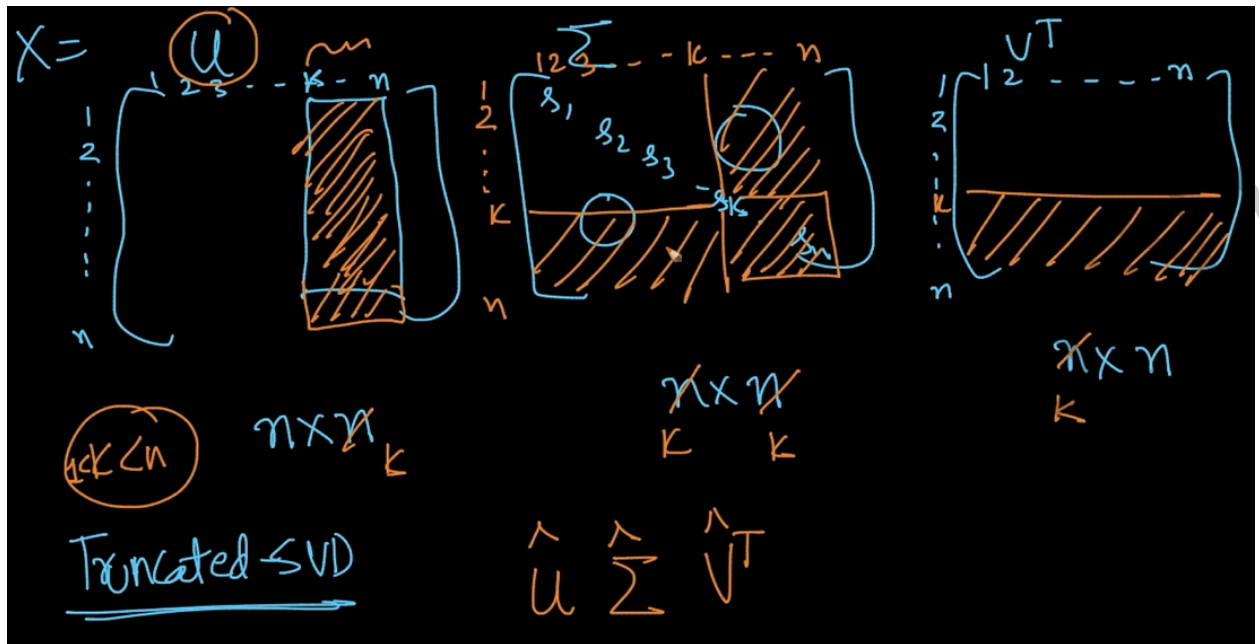 X =
U
1 2 3 - - K - n
1
2
n
Σ
1 2 3 - - - K - - - n
1
2
K
n
s1
s2
s3
sK
sn
V^T
1 2 - - - - n
1
2
K
n
n x n
K
n x n
K K
n x n
K
1<K<n
Truncated-SVD
Û Σ̂ V̂^T